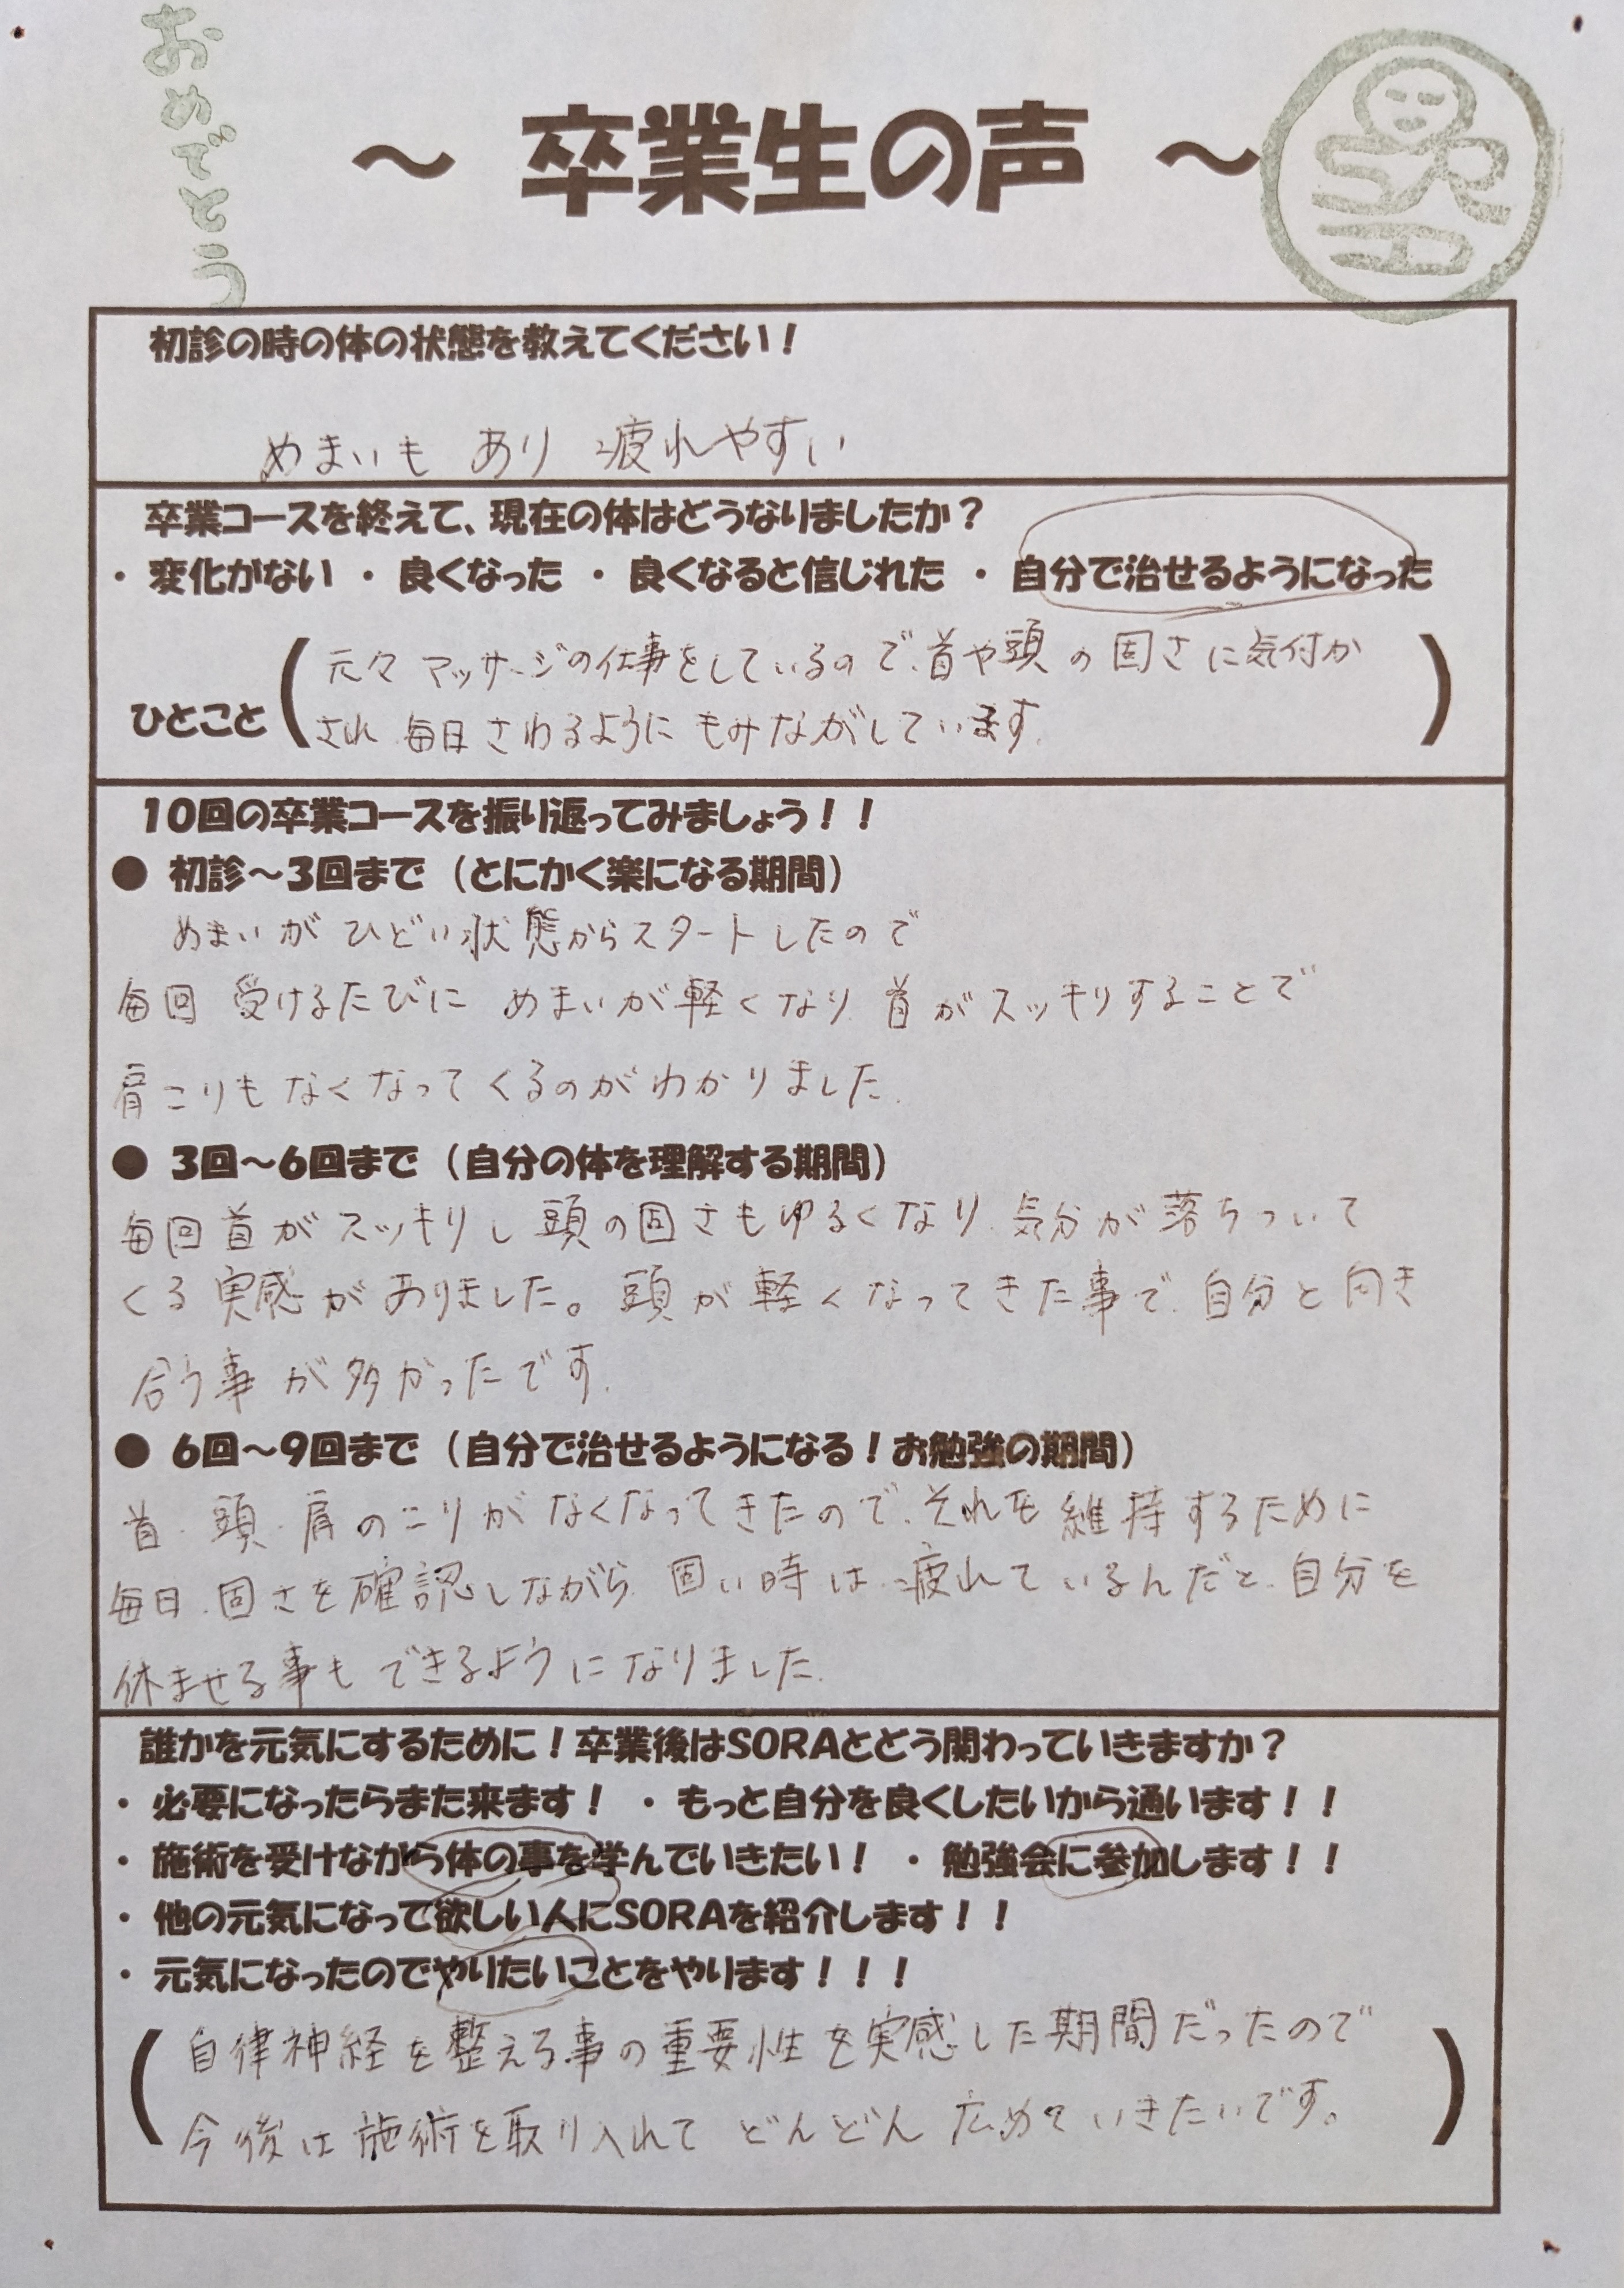 おめでとう
～ 卒業生の声 ～
初診の時の体の状態を教えてください！
めまいも あり 疲れやすい
卒業コースを終えて、現在の体はどうなりましたか？
・変化がない ・良くなった ・良くなると信じれた ・自分で治せるようになった
元々マッサージの仕事をしているので、首や頭の固さに気付か
ひとこと
され 毎日さわるように もみながしています。
10回の卒業コースを振り返ってみましょう！！
● 初診～3回まで（とにかく楽になる期間）
めまいが ひどい状態からスタートしたので
毎回 受けるたびに めまいが軽くなり、首がスッキリすることで
肩こりもなくなってくるのがわかりました。
● 3回～6回まで（自分の体を理解する期間）
毎回首がスッキリし 頭の固さもゆるくなり、気分が落ちついて
くる実感がありました。頭が軽くなってきた事で、自分と向き
合う事が多かったです。
● 6回～9回まで（自分で治せるようになる！お勉強の期間）
首、頭、肩のこりがなくなってきたので、それを維持するために
毎日、固さを確認しながら、固い時は、疲れているんだと、自分を
休ませる事もできるようになりました。
誰かを元気にするために！卒業後はSORAとどう関わっていきますか？
・必要になったらまた来ます！ ・もっと自分を良くしたいから通います！！
・施術を受けながら体の事を学んでいきたい！ ・勉強会に参加します！！
・他の元気になって欲しい人にSORAを紹介します！！
・元気になったのでやりたいことをやります！！！
自律神経を整える事の重要性を実感した期間だったので
今後は施術を取り入れて どんどん 広めていきたいです。